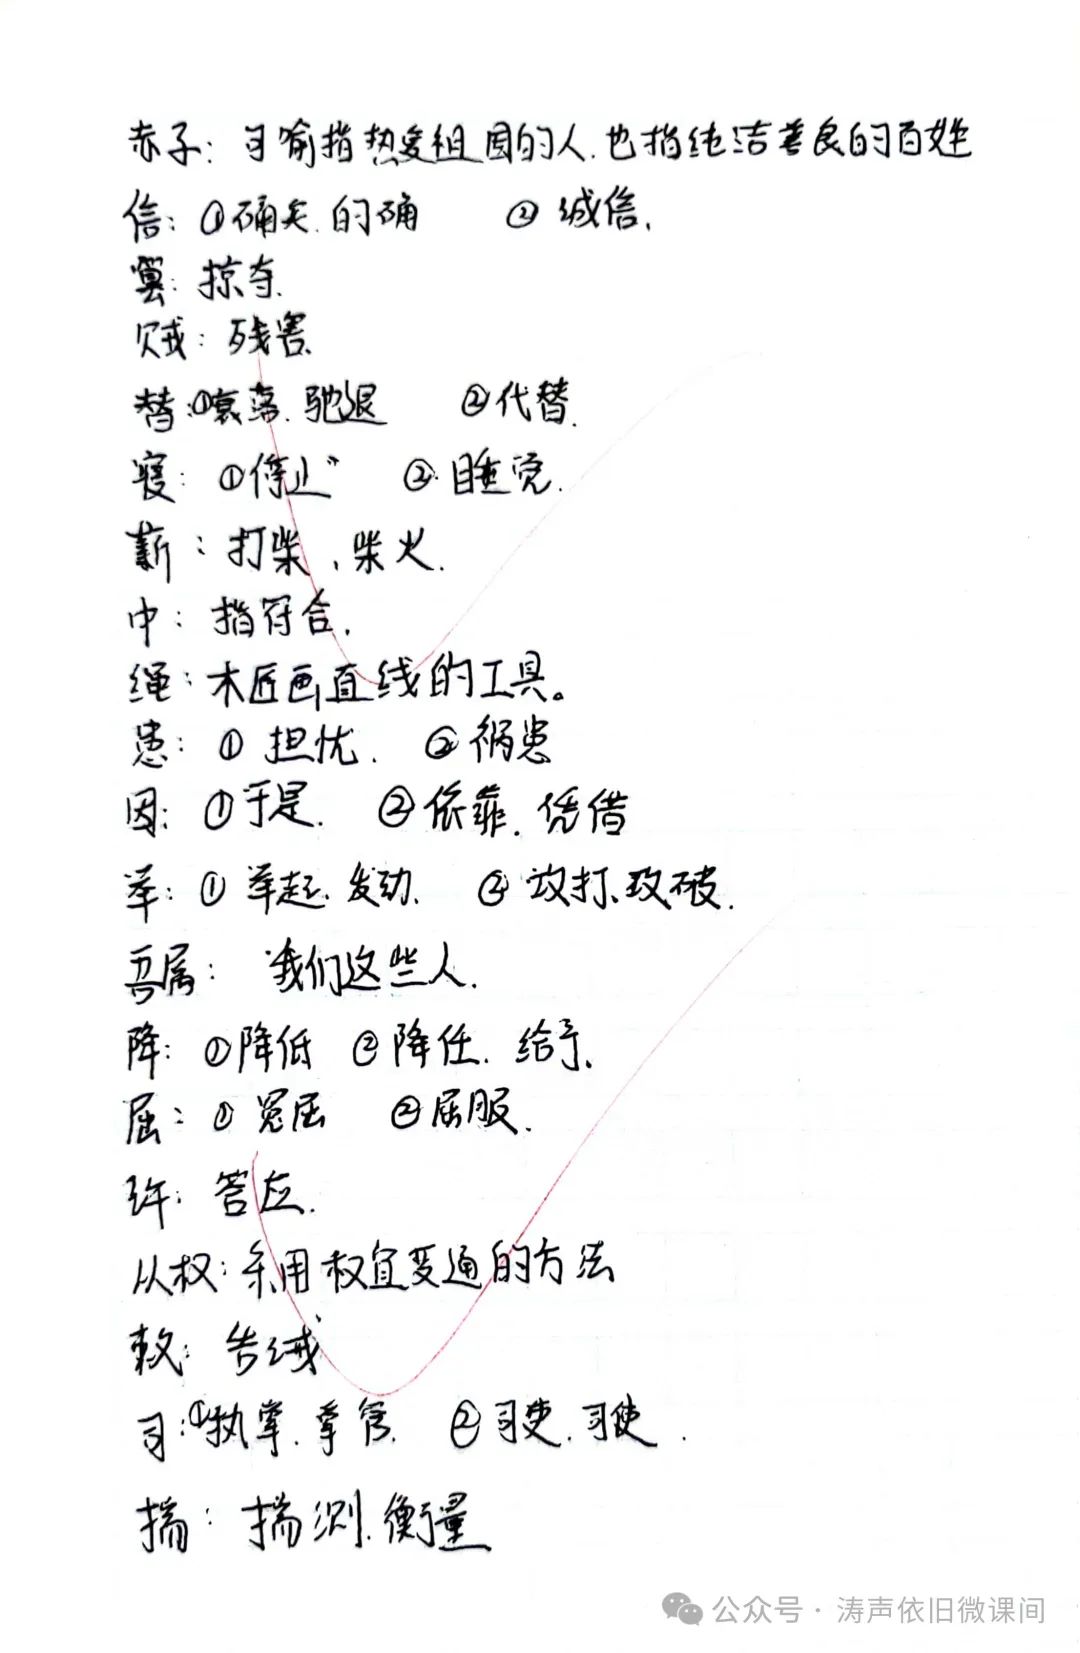 赤子：可喻指热爱祖国的人.也指纯洁善良的百姓
信：①确实.的确 ②诚信.
篡：掠夺.
贼：残害.
替：①衰落.驰退 ②代替.
寝：①停止 ②睡觉.
薪：打柴，柴火.
中：指符合.
绳：木匠画直线的工具。
患：①担忧. ②祸患
因：①于是. ②依靠.凭借
举：①举起.发动. ②攻打.攻破.
吾属：我们这些人.
降：①降低 ②降任.给予.
屈：①冤屈 ②屈服.
许：答应.
从权：采用权宜变通的方法
敕：告诫
司：①执掌.掌管. ②
揣：揣测.衡量
公众号·涛声依旧微课间